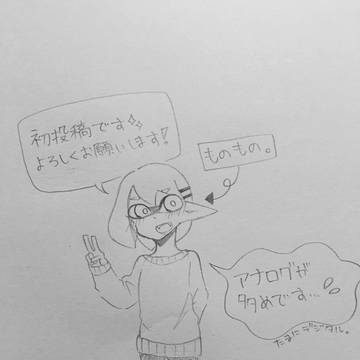 初投稿です✨
よろしくお願いします！
ものもの。
アナログが
多めです…💦
たまにデジタル。